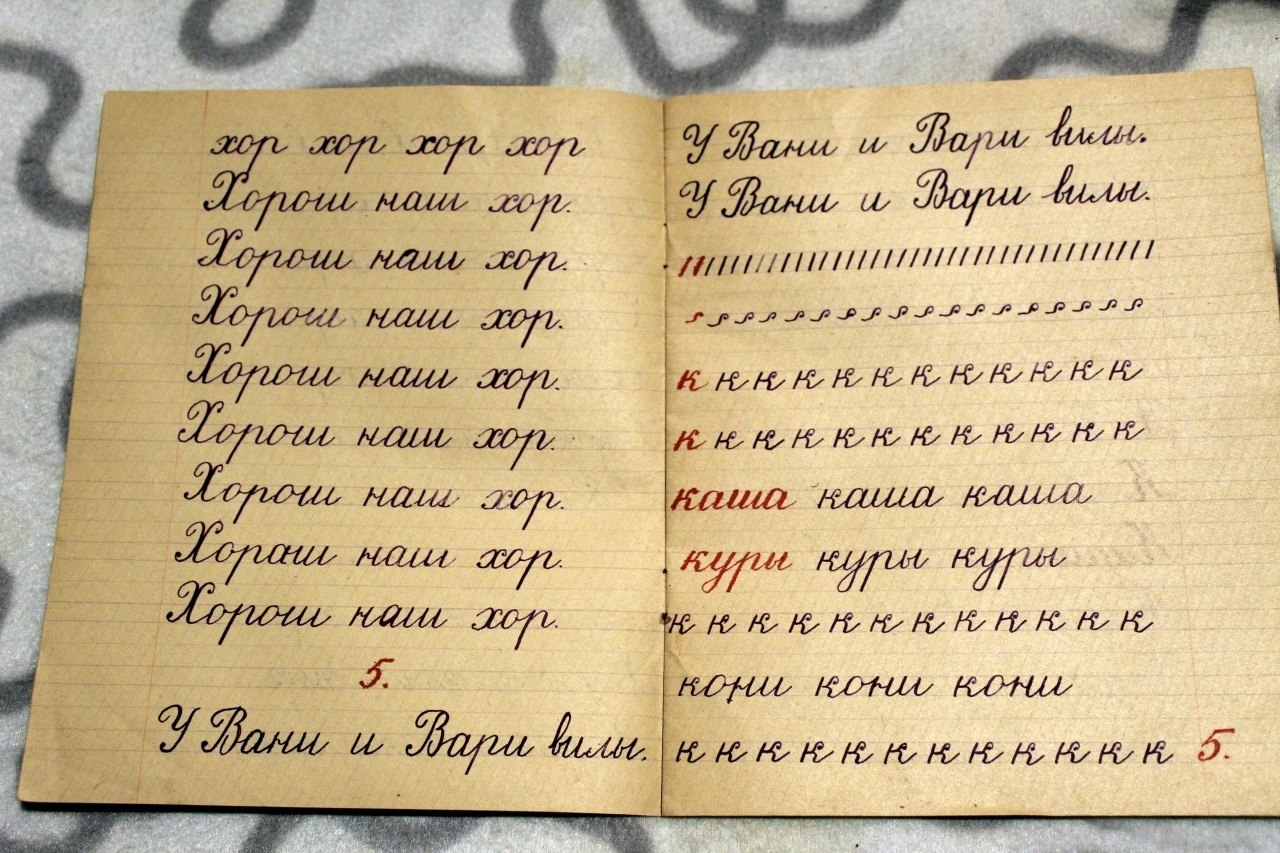 хор хор хор хор
Хорош наш хор.
Хорош наш хор.
Хорош наш хор.
Хорош наш хор.
Хорош наш хор.
Хорош наш хор.
Хораш наш хор.
Хорош наш хор.
5.
У Вани и Вари вилы.
У Вани и Вари вилы.
У Вани и Вари вилы.
к к к к к к к к к к к к
к к к к к к к к к к к к
каша каша каша
куры куры куры
к к к к к к к к к к к к
кони кони кони
к к к к к к к к к к к к 5.